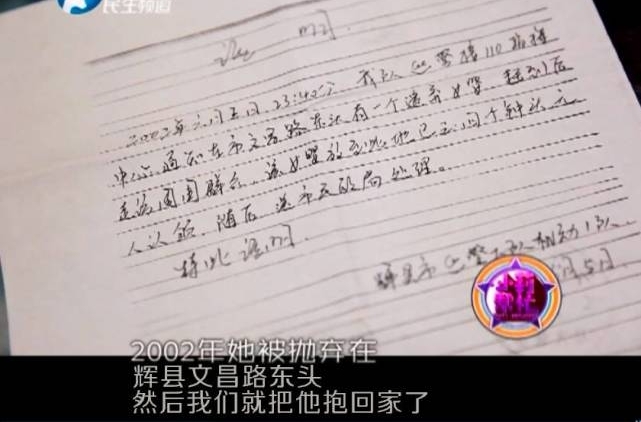 民生频道
证 明
2002年六月五日, 23:40分 我队巡警接110指挥
中心通知在市文昌路东头有一个遗弃女婴, 赶到后
走访周围群众, 该女婴放到此地已三个钟头无
人认领, 随后 送市民政局处理。
特此证明
辉县市巡警大队机动1队
月5日
2002年她被抛弃在
辉县文昌路东头
然后我们就把他抱回家了